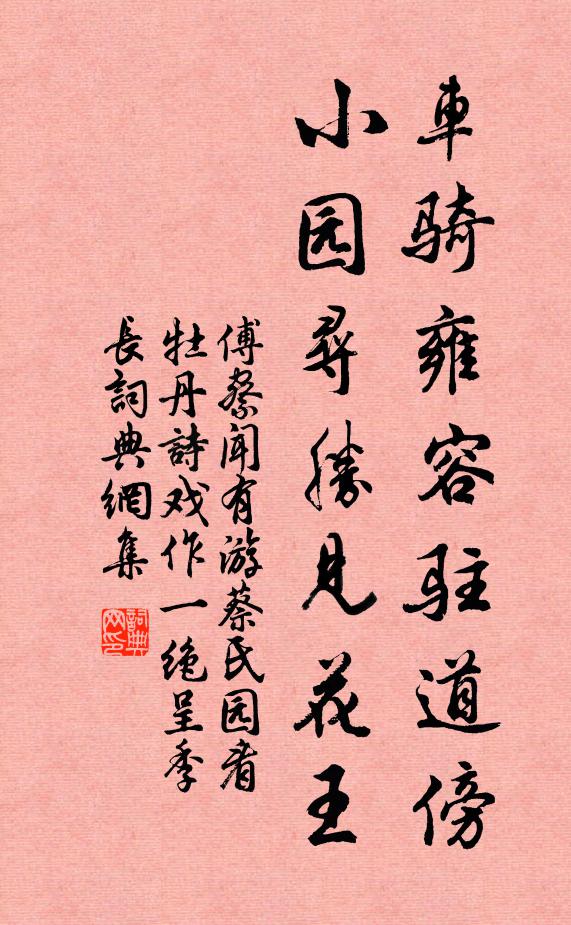 車骑雍容駐道傍
小园尋勝見花王
傅察闻有游蔡氏园者
牡丹詩戏作一绝呈季
長詞典網集
詞典网印